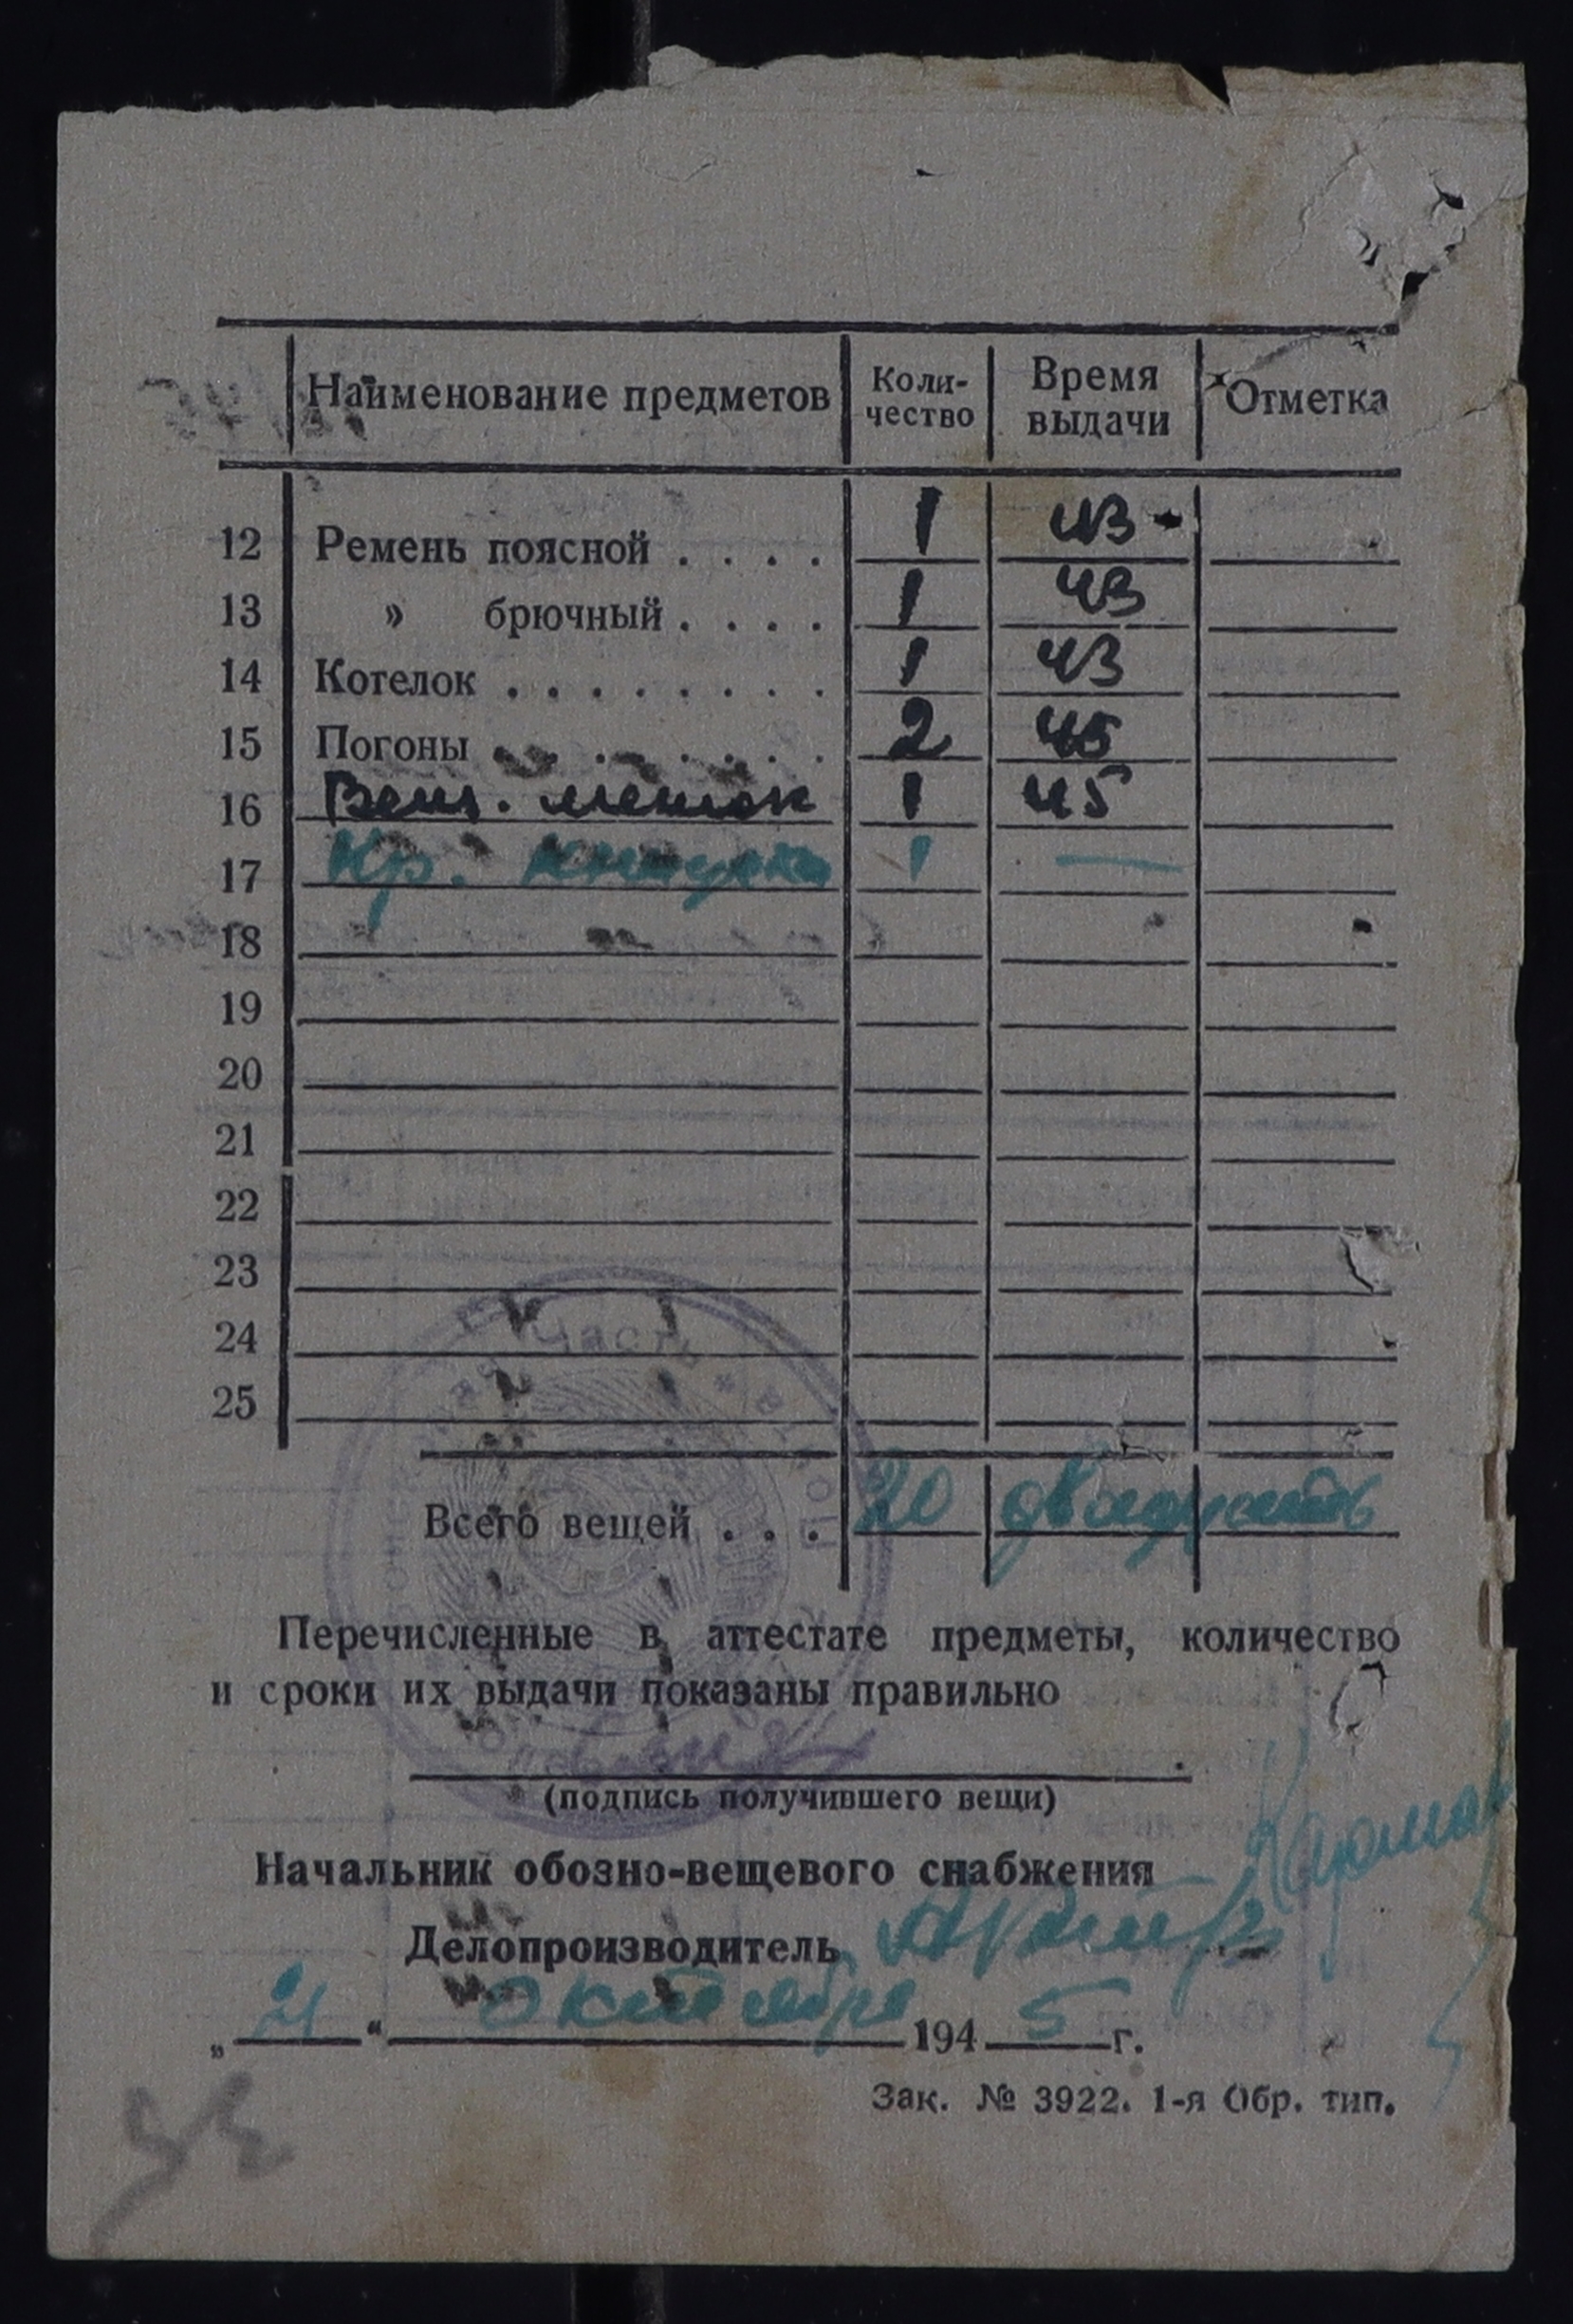 Наименование предметов Коли-чество Время выдачи Отметка
12 Ремень поясной . . . . 1 43
13 » брючный . . . . 1 43
14 Котелок . . . . . . . . 1 43
15 Погоны . . . . . . . 2 45
16 Вещ. мешок 1 45
17 Кр. книжка 1 —
18
19
20
21
22
23
24
25
Всего вещей . . . 20 двадцать
Перечисленные в аттестате предметы, количество
и сроки их выдачи показаны правильно
(подпись получившего вещи)
Начальник обозно-вещевого снабжения
Делопроизводитель
„ 21 “ октября 194 5 г.
Зак. № 3922. 1-я Обр. тип.
часть